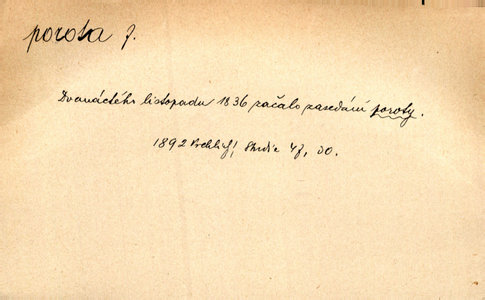 porota f.
Dvanáctého listopadu 1836 začalo zasedání poroty.
1892 Vrchlický, Studie 47, 30.